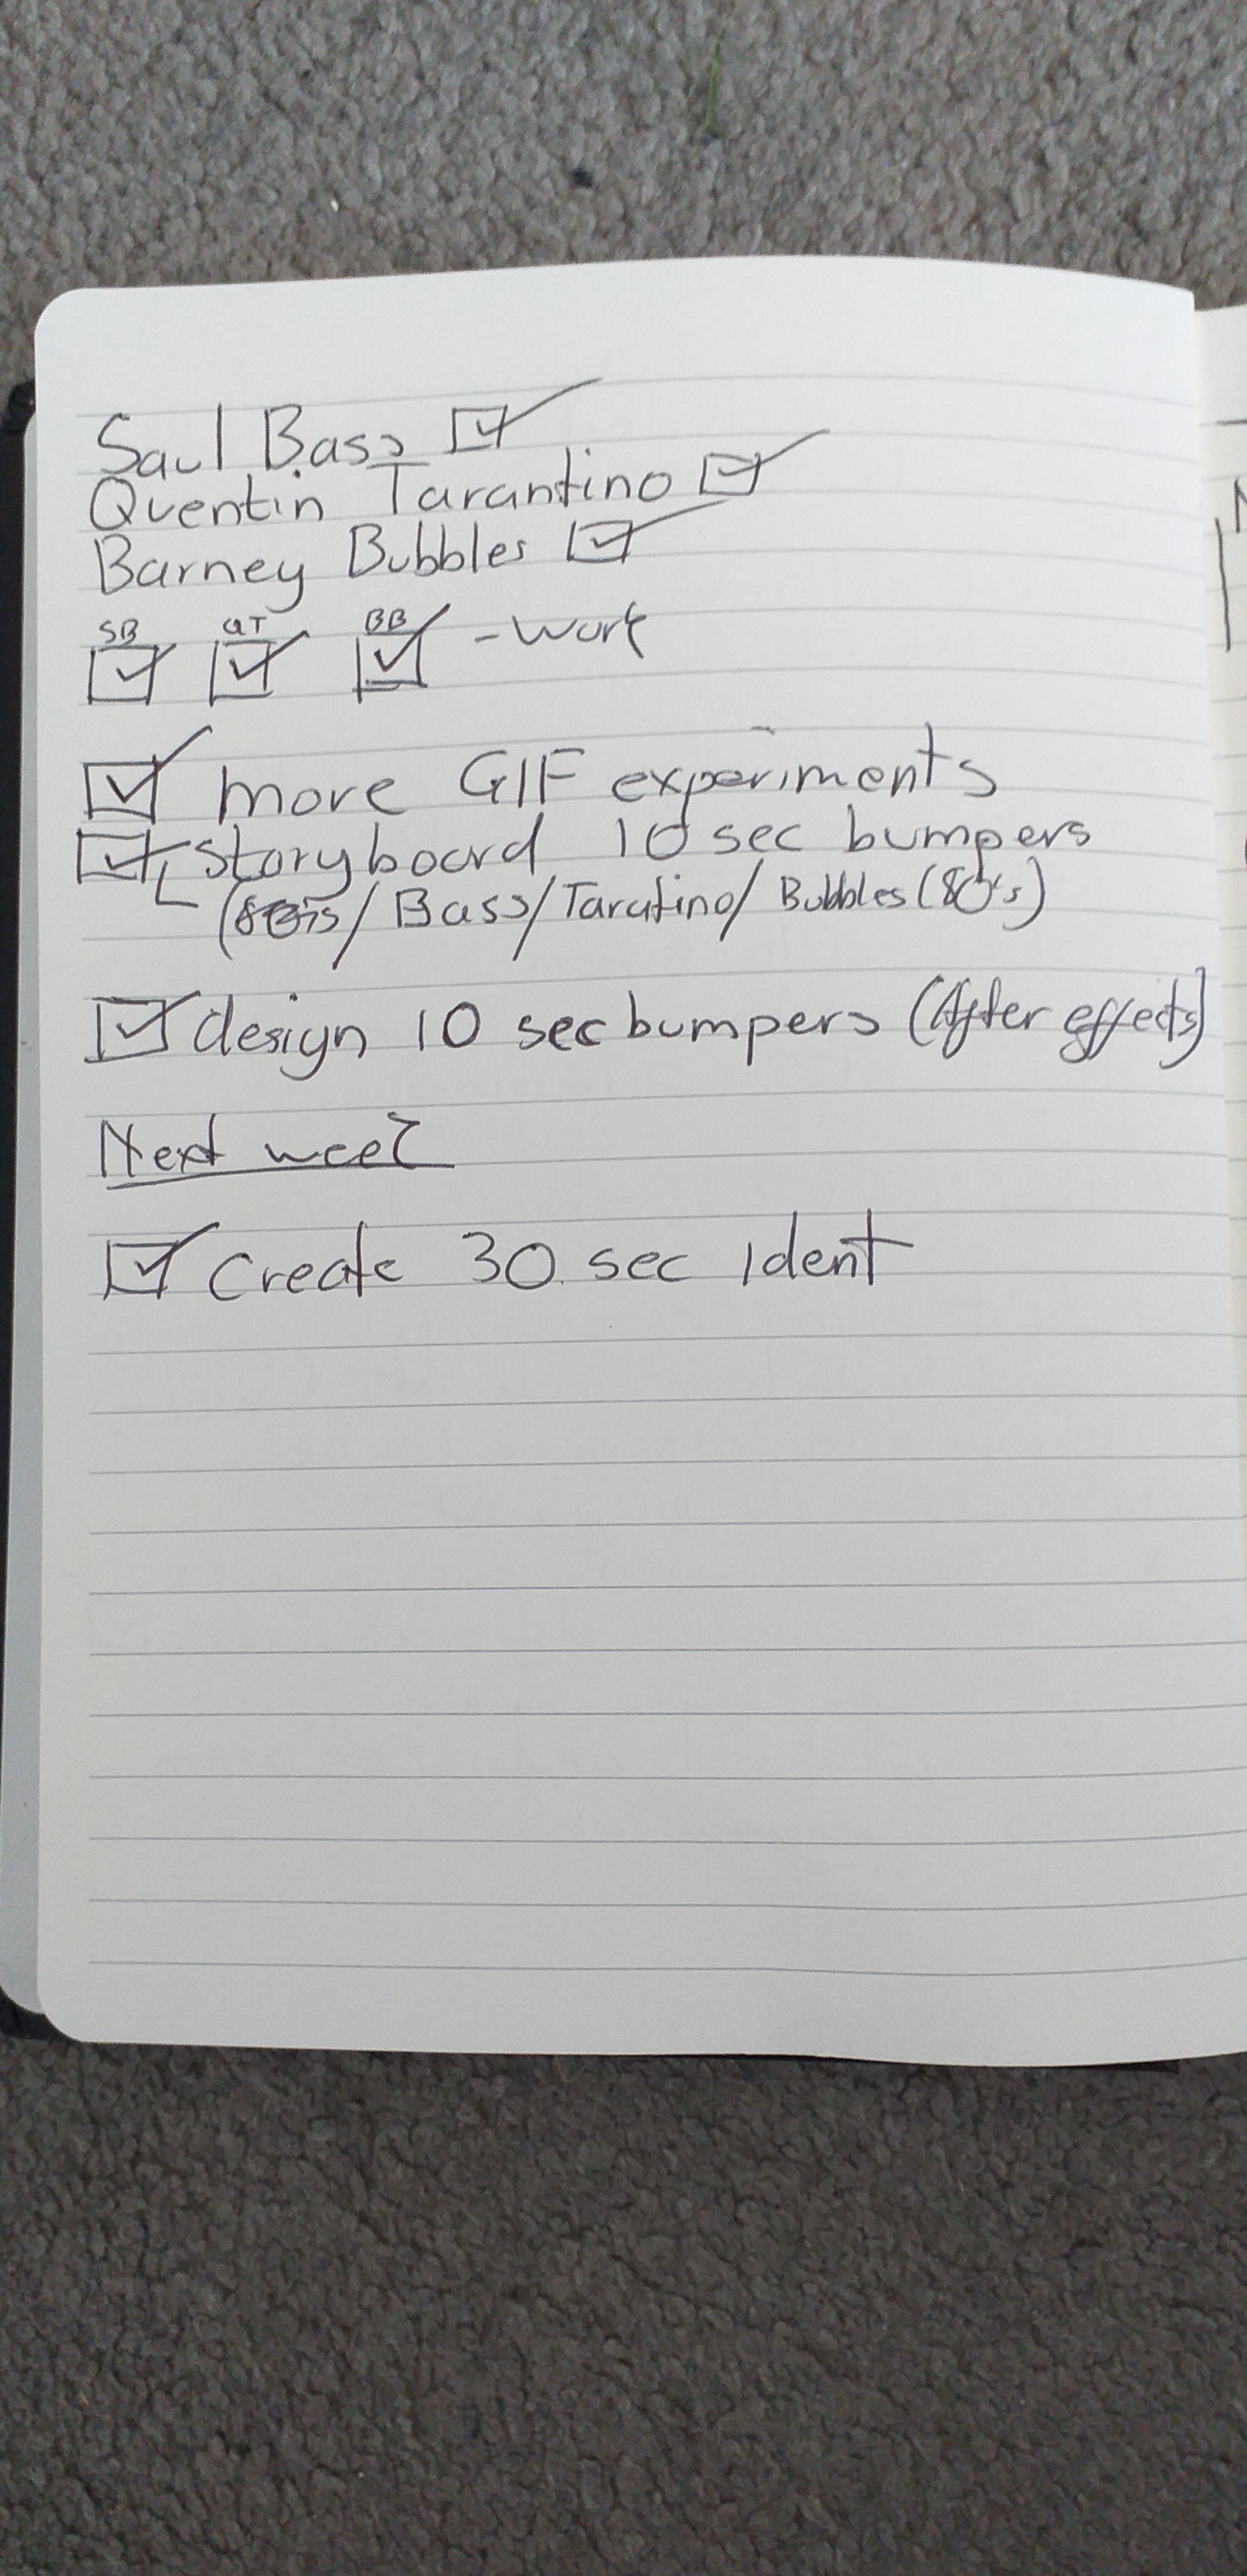 Saul Bass ☑
Quentin Tarantino ☑
Barney Bubbles ☑
SB QT BB
☑ ☑ ☑ - Work
☑ more GIF experiments
☑ storyboard 10 sec bumpers
(/ Bass/Taratino/ Bubbles (80's)
☑ design 10 sec bumpers (After effects)
Next week
☑ Create 30 sec Ident